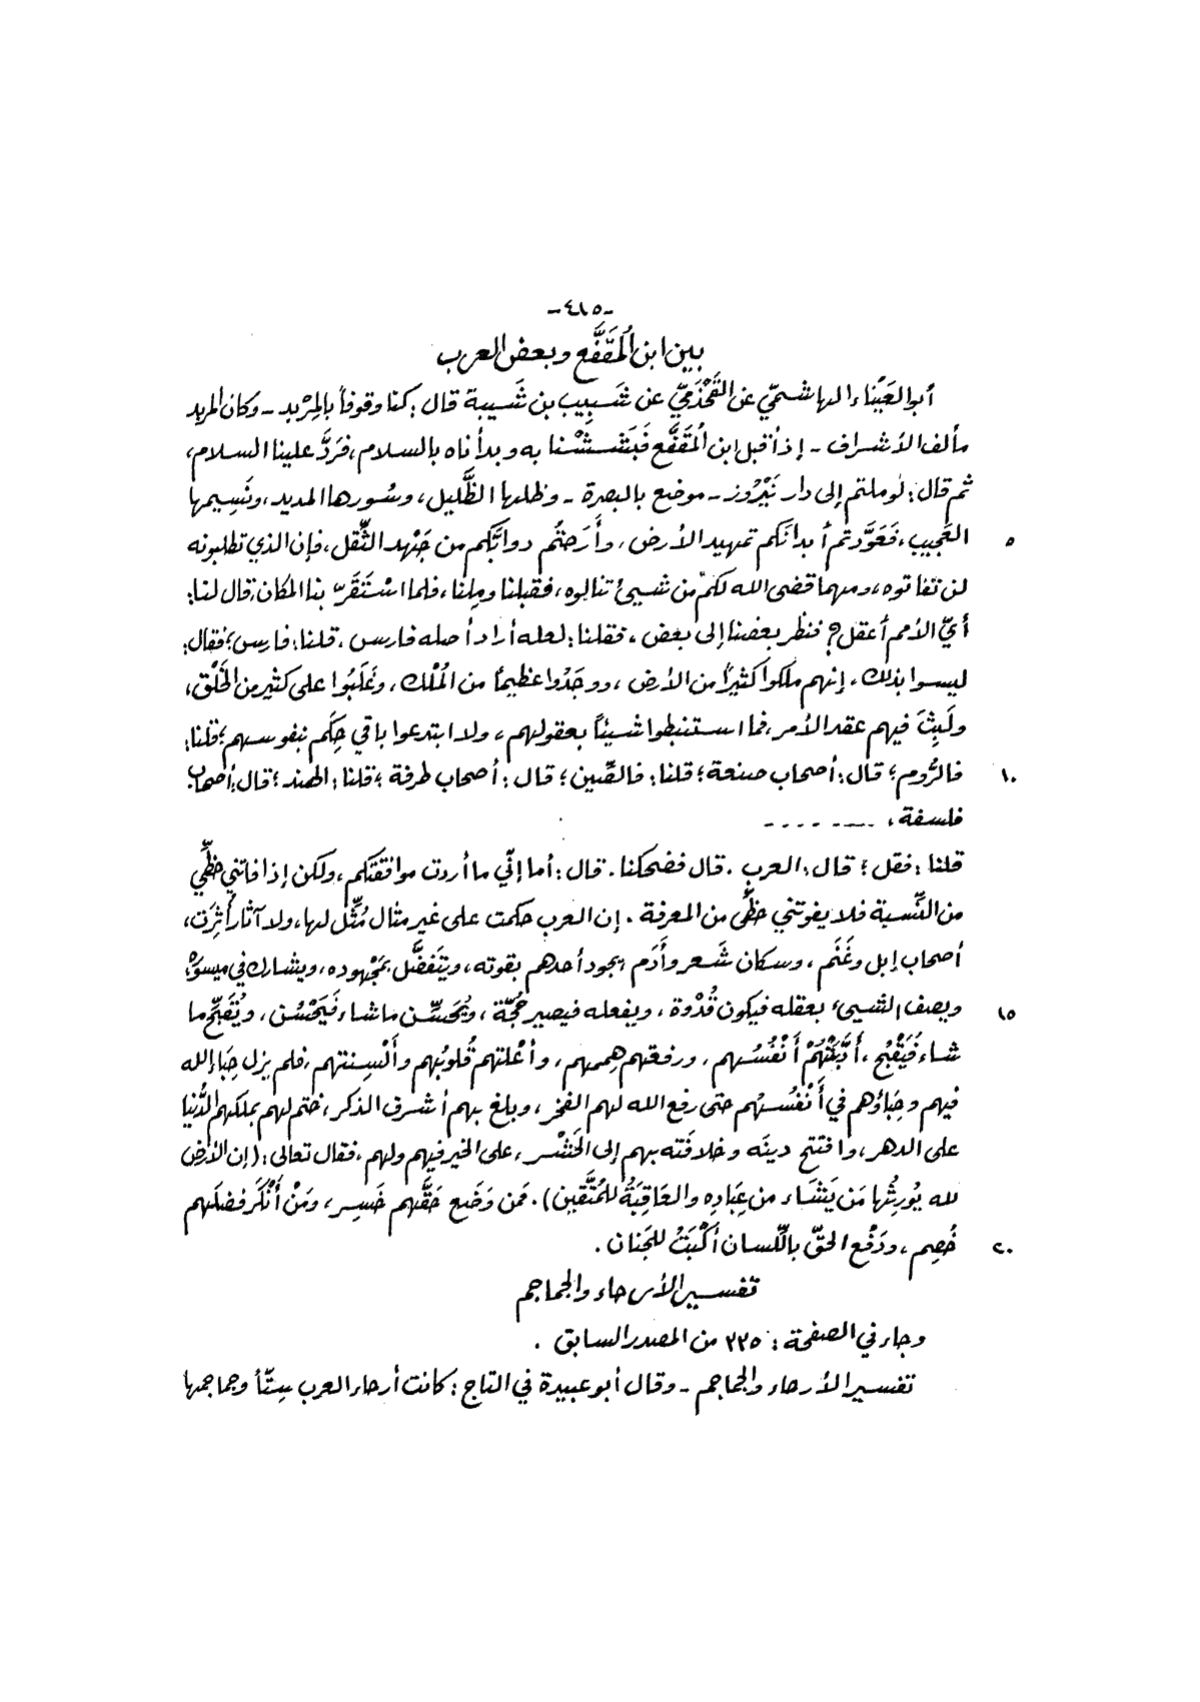 -٤١٥-
بين ابن المُقَفَّع وبعض العرب
أبو العَيْناء الهاشميّ عن القَحْذَميّ عن شَبِيب بن شَيبة قال : كنا وقوفاً بالمِرْبد - وكان المربد
مألف الأشراف - إذ أقبل ابن المُقَفَّع فَبَشَشْنا به وبدأناه بالسلام ، فَرَدَّ علينا السلام ،
ثم قال : لو ملتم إلى دار نَيْرُوز - موضع بالبصرة - وظلها الظَّليل ، وسُورها المديد ، ونَسِيمها
٥ العَجيب ، فَعَوَّدتم أبدانَكم تمهيد الأرض ، وأرَحتُم دوابَّكم من جَهْد الثِّقل ، فإن الذي تطلبونه
لن تفاتوه ، ومهما قضى الله لكم من شيئ تنالوه ، فقبلنا ومِلنا ، فلما اسْتَقَرّ بنا المكان ، قال لنا :
أيّ الأمم أعقل ؟ فنظر بعضنا إلى بعض ، فقلنا : لعله أراد أصله فارس ، قلنا : فارس ؛ فقال :
ليسوا بذلك ، إنهم ملكوا كثيرًا من الأرض ، ووجَدُوا عظيماً من المُلك ، وغَلَبُوا على كثير من الخَلْق ،
ولَبِثَ فيهم عقد الأمر ، فما استنبطوا شيئاً بعقولهم ، ولا ابتدعوا باقي حِكَم نبفوسهم ؛ قلنا :
١٠ فالرُّوم ؛ قال : أصحاب صنعة ؛ قلنا : فالصِّين ؛ قال : أصحاب طرفة ؛ قلنا : الهند ؛ قال : أصحاب
فلسفة ، - - - - - - -
قلنا : فقل ؛ قال : العرب . قال فضحكنا . قال : أما إنّي ما أردت موافقتكم ، ولكن إذا فاتني حظِّي
من النِّسبة فلا يفوتني حظِّي من المعرفة . إن العرب حكمت على غير مثال مُثِّل لها ، ولا آثار أُثِرَت ،
أصحاب إبل وغَنَم ، وسكان شَعر وأَدَم ، يجود أحدهم بقوته ، ويتَفضَّل بمَجْهوده ، ويشارك في ميسوره
١٥ ويصف الشيئ بعقله فيكون قُدْوة ، ويفعله فيصير حُجّة ، ويُحَسِّن ما شاء فَيَحْسُن ، ويُقَبِّح ما
شاء فَيَقْبُح ، أدَّبَتْهُمْ أنْفُسُهم ، ورفعتهم هِممهم ، وأعْلتهم قُلوبُهم وألْسِنتهم ، فلم يزل حِبَاء الله
فيهم وحِباؤهم في أَنْفُسهُم حتى رفع الله لهم الفخر ، وبلغ بهم أشرف الذكر ، ختم لهم بملكهم الدُّنيا
على الدهر ، وافتتح دينَه وخلافَته بهم إلى الحَشْر ، على الخير فيهم ولهم ، فقال تعالى : (إن الأرض
لله يُورِثُها مَن يَشَاء من عِبَادِه والعَاقِبَةُ للمُتَّقين) . فمن وَضَع حَقَّهم خَسِر ، ومَنْ أَنْكَر فضلهم
٢٠ خُصِم ، ودَفْع الحقّ باللِّسان أكْبَتُ للجَنان .
تفسير الأرحاء والجماجم
وجاء في الصفحة : ٣٣٥ من المصدر السابق .
تفسير الأرحاء والجماجم - وقال أبو عبيدة في التاج : كانت أرحاء العرب ستّاً وجماجمها